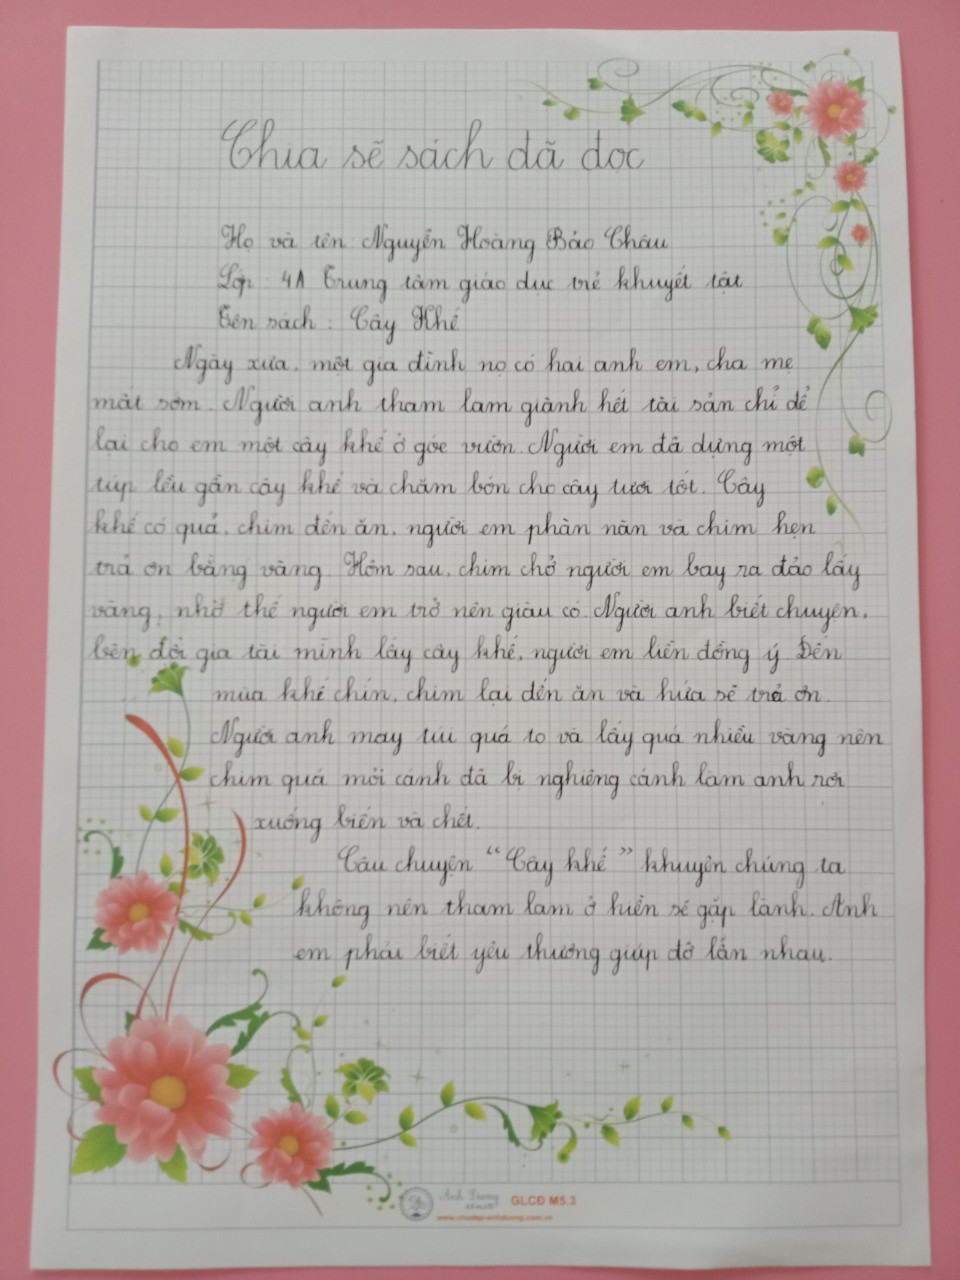 Chia sẽ sách đã đọc
Họ và tên Nguyễn Hoàng Bảo Châu
Lớp : 4A Trung tâm giáo dục trẻ khuyết tật
Tên sách : Cây Khế
Ngày xưa, một gia đình nọ có hai anh em, cha mẹ
mất sớm. Người anh tham lam giành hết tài sản chỉ để
lại cho em một cây khế ở góc vườn. Người em đã dựng một
túp lều gần cây khế và chăm bón cho cây tươi tốt. Cây
khế có quả, chim đến ăn, người em phàn nàn và chim hẹn
trả ơn bằng vàng. Hôm sau, chim chở người em bay ra đảo lấy
vàng, nhờ thế người em trở nên giàu có. Người anh biết chuyện,
bèn đổi gia tài mình lấy cây khế, người em liền đồng ý. Đến
mùa khế chín, chim lại đến ăn và hứa sẽ trả ơn.
Người anh may túi quá to và lấy quá nhiều vàng nên
chim quá mỏi cánh đã bị nghiêng cánh làm anh rơi
xuống biển và chết.
Câu chuyện "Cây khế" khuyên chúng ta
không nên tham lam ở hiền sẽ gặp lành. Anh
em phải biết yêu thương giúp đỡ lẫn nhau.
Ánh Dương
GLCĐ M5.3